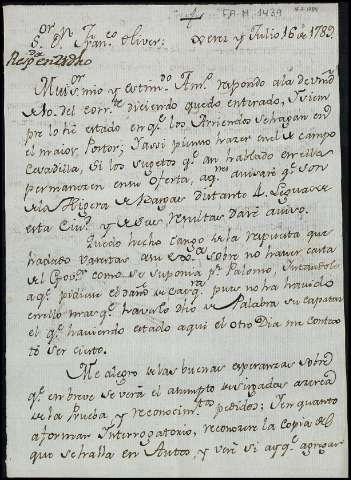 FA-M-1439
Sor. Dn. Franco. Oliver: Xerez y Julio 16 de 1789.
Respda en 23 dho
Mui sr mio y estimdo Amo. respondo a la de vmd
de 10 del corrte diciendo quedo enterado, y siem
pre lo hé estado en qe. los Arriendos se hagan en
el maior Postor; y assi pienso hazer en el de campo
Cevadilla, si los sugetos qe. an hablado en ella
permanezen en su oferta, aqnes avisaré qe. son
de la Higera de Bargas distante 4 leguas de
esta Ciud. y de sus resultas daré aviso.
Quedo hecho cargo de la respuesta que
ha dado Varetas sobre no haver carta
del Govor. como se suponia pr. Palomo,
aqn. pidiese el daño pues no ha havido
en ello mas qe. haverlo dho de Palabra su capataz
el qe. haviendo estado aqui el otro Dia me contex
tó ser cierto.
Me alegro de las buenas esperanzas sobre
qe. en breve se verá el assumpto de sigadas azerca
de la Prueba, y reconocimtos pedidos; y en quanto
a formar Interrogatorio, reconozere la copia del
que se halla en Autos, y veré si ay qe. agregar